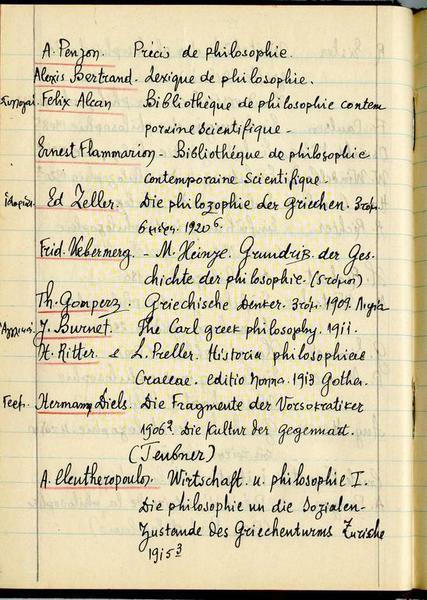 A. Penjon. Précis de philosophie.
Alexis Bertrand. Lexique de philosophie.
Felix Alcan Bibliothèque de philosophie contem
poraine scientifique -
Ernest Flammarion - Bibliothéque de philosophie
contemporaine scientifique.
Ed Zeller. Die philozophie der Griechen. 3τόμ.
6 1920⁶.
Frid. Ueberwerg. - M. Heinze. Grundriß der Ges-
chichte der philosophie. (5 τόμοι)
Th. Gomperz Griechische Denker. 3τόμ. 1909. Λειψία
J. Burnet. The Earl greek philosophy. 1911.
H. Ritter. e L. Preller. Historia philosophiae
Graecae. editio nonna. 1913 Gothen.
Hermann Diels. Die Fragmente der Vorsokratiker
1906² Die Kultur der Gegenwart.
(Teubner)
A. Eleutheropoulos. Wirtschaft. u. philosophie I.
Die philosophie un die Sozialen-
Zustande des Griechenturms Zürische
1915³